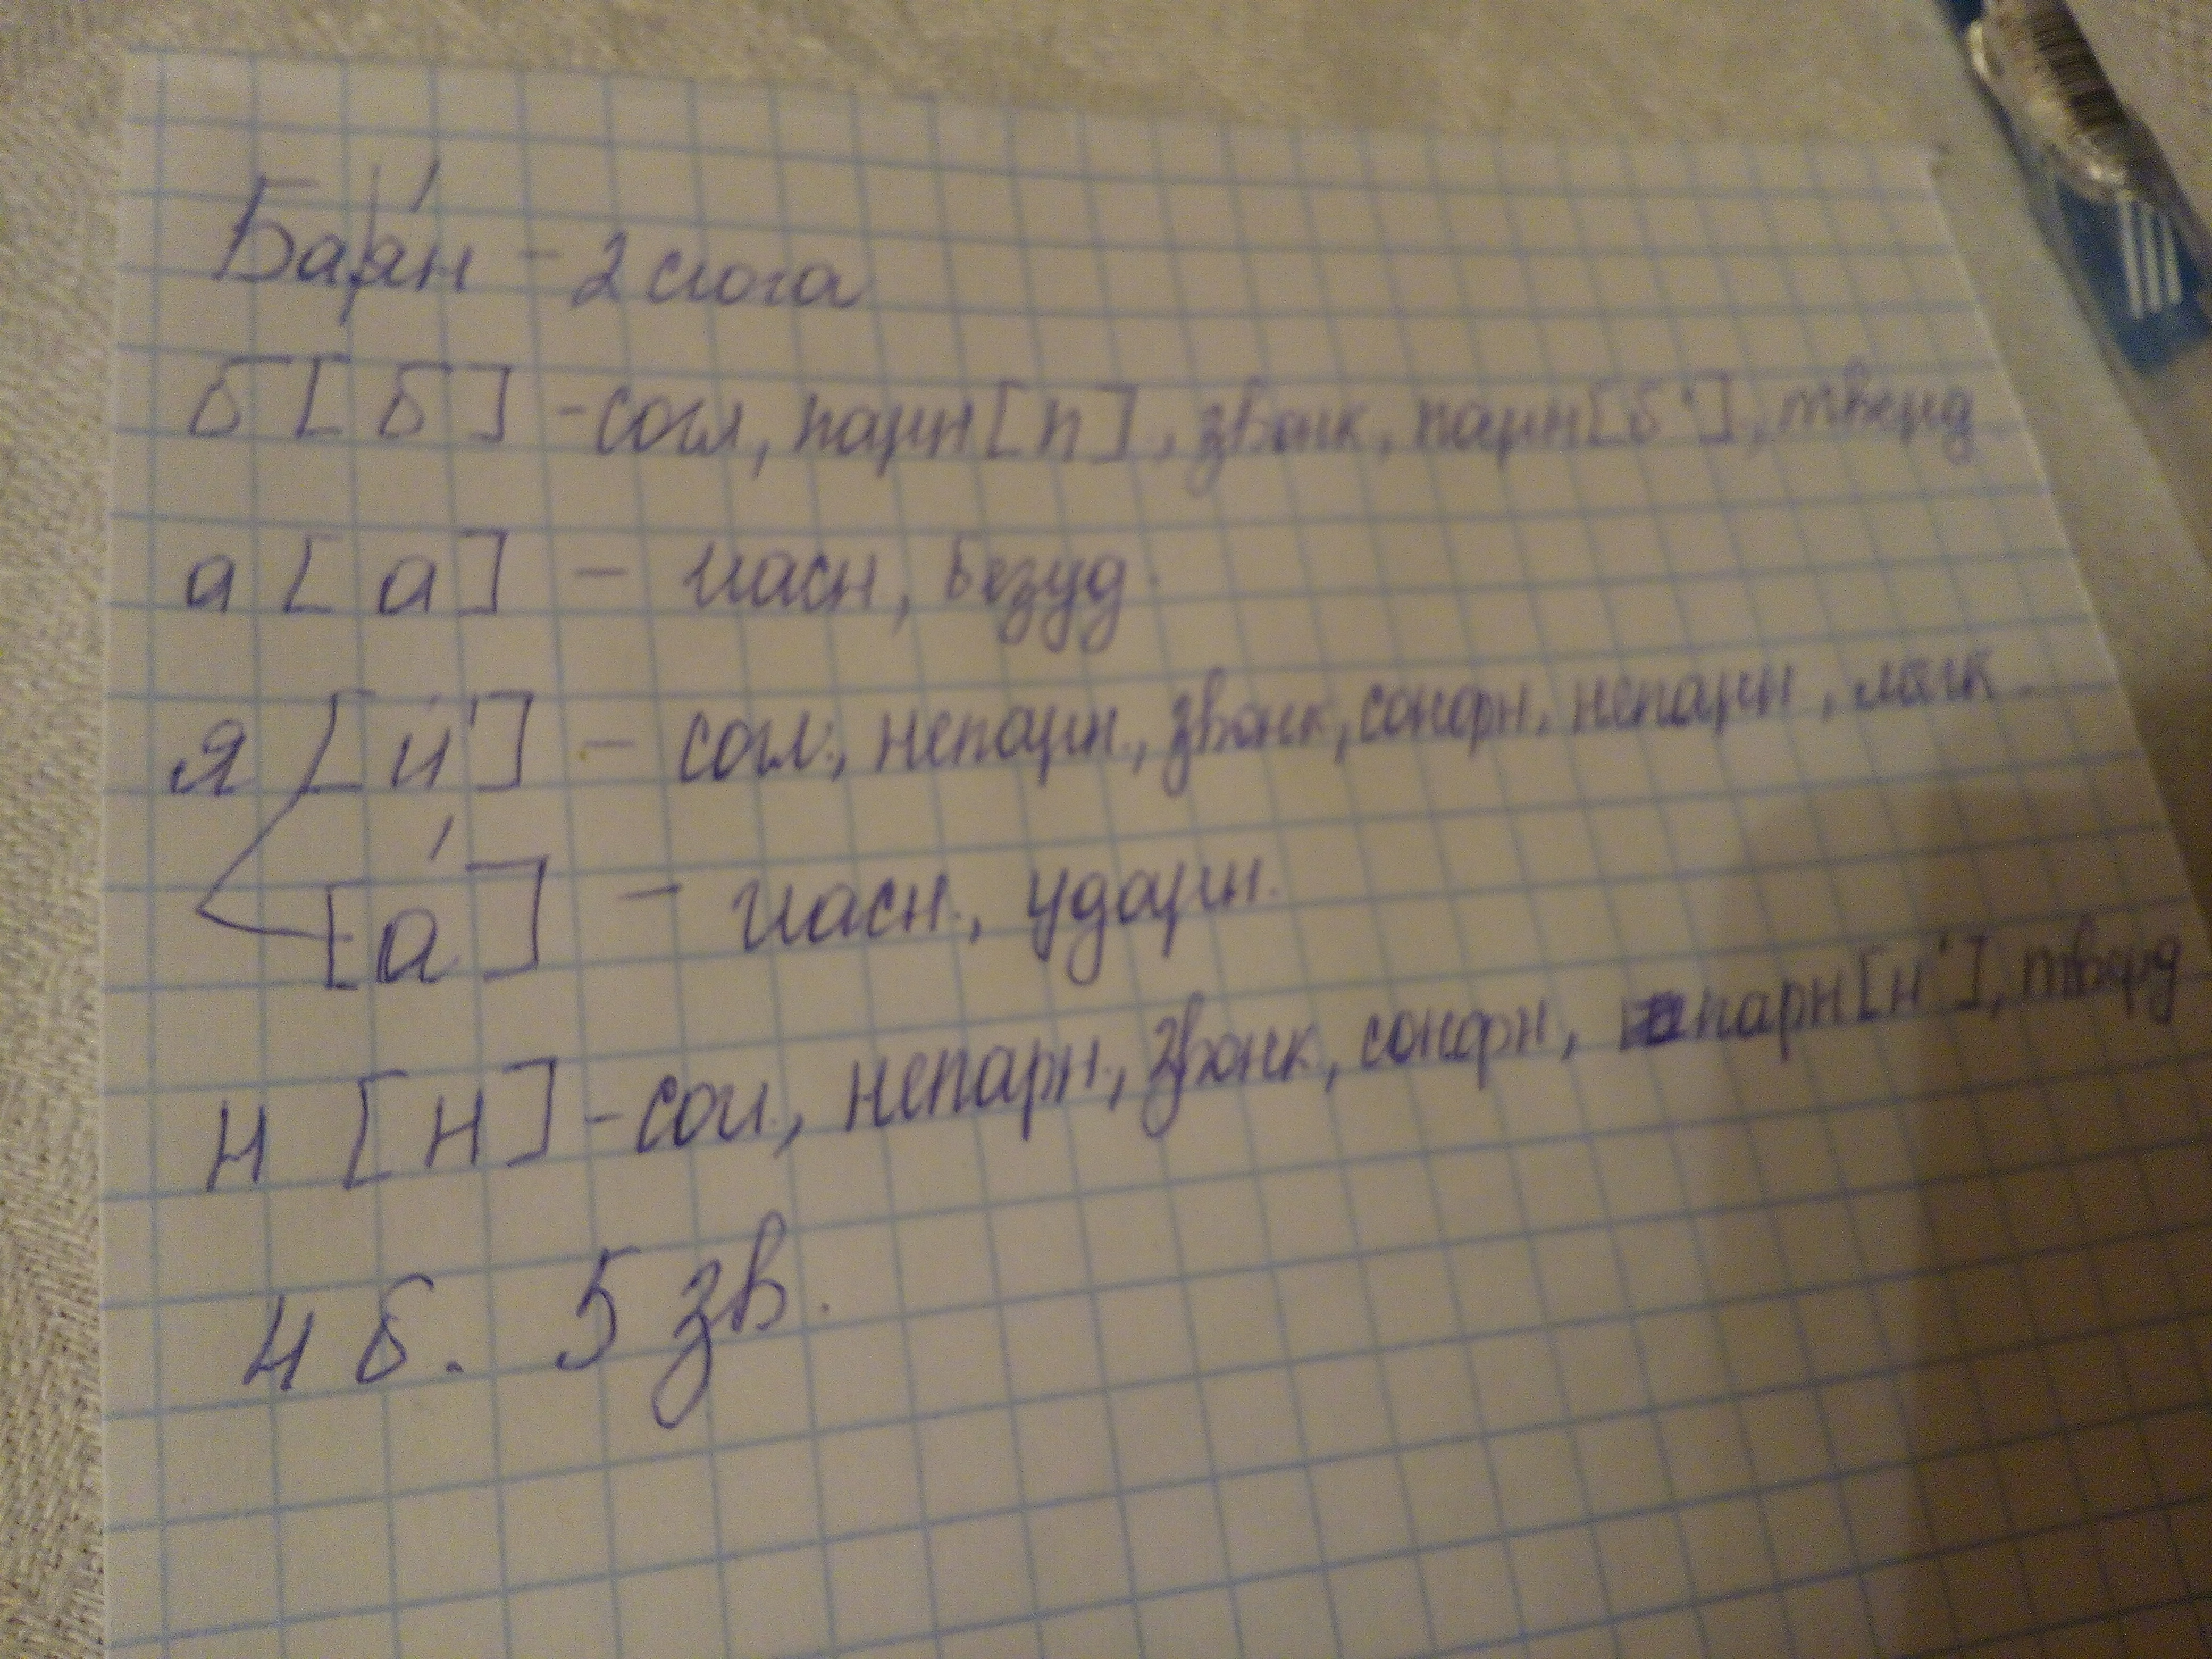 Ба|я́н - 2 слога
б [б] - согл, парн [п], звонк, парн [б'], тверд
а [а] - гласн, безуд.
я [й'] - согл., непарн., звонк, сонорн, непарн, мягк.
[а́] - гласн., ударн.
н [н] - согл., непарн., звонк, сонорн, парн [н'], тверд
4 б. 5 зв.